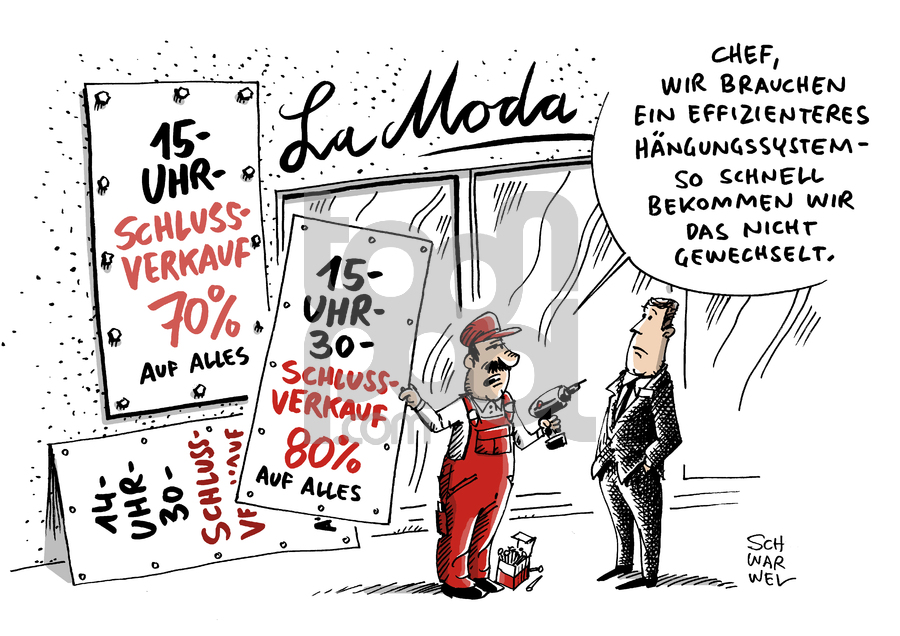 La Moda
CHEF,
WIR BRAUCHEN
EIN EFFIZIENTERES
HÄNGUNGSSYSTEM–
SO SCHNELL
BEKOMMEN WIR
DAS NICHT
GEWECHSELT.
15-
UHR-
SCHLUSS-
VERKAUF
70%
AUF ALLES
15-
UHR-
30-
SCHLUSS-
VERKAUF
80%
AUF ALLES
14-
UHR-
30-
SCHLUSS-
toon
pool
.com
SCH
WAR
WEL